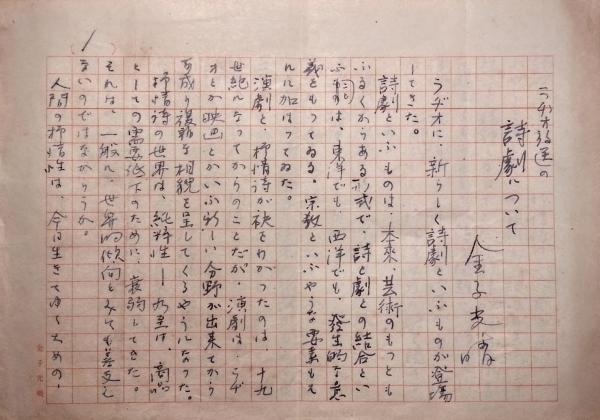 1
ラヂオ放送の
詩劇について
金子光晴
ラヂオに、新らしく詩劇といふものが登場
してきた。
詩劇といふものは、本来、芸術のもつとも
ふるくからある形式で、詩と劇との結合とい
ふものは、東洋でも、西洋でも、発生的な意
義をもつてゐる。宗教といふやうな要素もそ
れに加はつてゐた。
演劇と、抒情詩が袂をわかつたのは、十九
世紀になつてからのことだが、演劇は、ラヂ
オとか映画とかいふ新しい分野が出来てから
可成り複雑な相貌を呈してくるやうになつた。
抒情詩の世界は、純粋性
は、商品
としての需要低下のために、衰弱してきた。
それは、一般に、世界的傾向とみても差支え
ないのではなからうか。
人間の抒情性は、今日生きてゆくための、
金子光晴